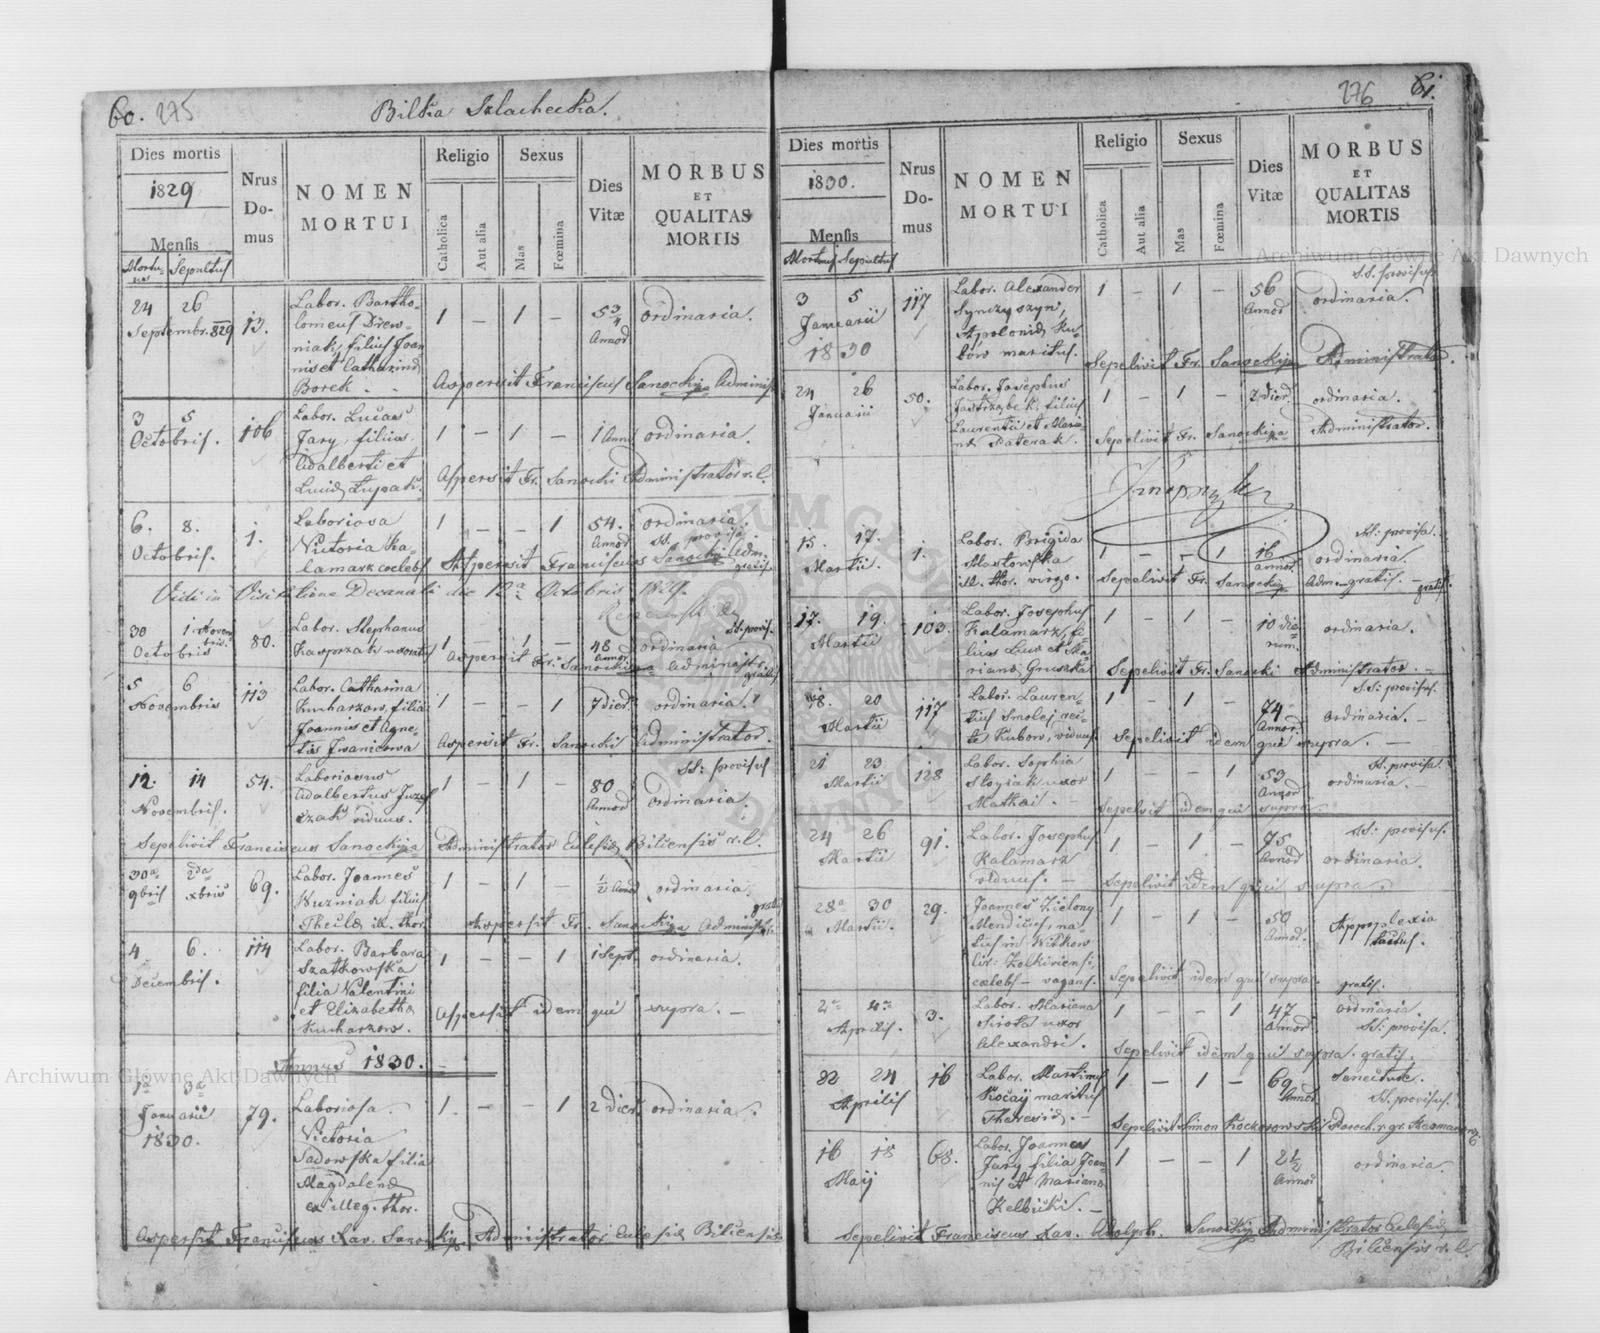 60. 275
Bilka Szlachecka.
Dies mortis
1829
Mensis
Mortuus Sepultus
Nrus Domus
NOMEN MORTUI
Religio
Catholica
Aut alia
Sexus
Mas
Fœmina
Dies Vitæ
MORBUS
ET
QUALITAS
MORTIS
24 26
Septembr. 829
13.
Labor. Bartho-
lomeus Drew-
niak, filius Joan
nis et Catharinæ
Borek
1 — 1 —
5 3/4
Annor
ordinaria.
Aspersit Franciscus Sanocki Adminis
3 5
Octobris.
106
Labor. Lucas
Jary, filius
Adalberti et
Luciæ
1 — 1 —
1 Anni
ordinaria.
Aspersit Fr. Sanocki Administrator r. l.
6. 8.
Octobris.
1.
Laboriosa
Victoria Ka-
lamarz coelebs
1 — — 1
54.
Annor
ordinaria.
SS. provisa.
Aspersit Franciscus Sanocki Adm.
gratis
Vidi in Visitatione Decanali die 12a Octobris 1829.
30 1 Novem
bris
Octobris
80.
Labor. Stephanus
Kasprzak
1 — 1 —
48
Annor
SS. provis.
ordinaria
Aspersit Fr. Sanocki Administr.
gratis
5 6
Novembris
113
Labor. Catharina
Kucharzow, filia
Joannis et Agne-
tis Iwanicowa
1 — — 1
7 dier.
ordinaria.
Aspersit Fr. Sanocki Administrator.
12. 14
Novembris.
54.
Laboriosus
Adalbertus Juzef
czak viduus.
1 — 1 —
80
Annor
SS: provisus
ordinaria.
Sepelivit Franciscus Sanocki Administrator Ecclesiæ Bilcensis r. l.
30a 2da
9bris xbris
69.
Labor. Joannes
Wuzniak filius
Theclæ ill. thor.
1 — 1 —
1/2 Anni
ordinaria.
gratis
Aspersit Fr. Sanocki Administr.
4 6.
Decembris.
114
Labor. Barbara
Szatkowska
filia Valentini
et Elizabetha
Kucharzow.
1 — — 1
1 Sept.
ordinaria.
Aspersit idem qui supra. —
Annus 1830.
1a 3a
Januarii
1830.
79.
Laboriosa
Victoria
Sadowska filia
Magdalenæ
ex illeg. thor.
1. — — 1
2 dier
ordinaria.
Aspersit Franciscus Xav. Sanocki Administrator Ecclesiæ Bilcensis
276 61.
Dies mortis
1830.
Mensis
Mortuus Sepultus
Nrus Domus
NOMEN MORTUI
Religio
Catholica
Aut alia
Sexus
Mas
Fœmina
Dies Vitæ
MORBUS
ET
QUALITAS
MORTIS
3 5
Januarii
1830
117
Labor. Alexander
Synczyszyn,
Apoloniæ Ku-
bów maritus.
1 — 1 —
56
Annor
SS. provisus
ordinaria.
Sepelivit Fr. Sanocki Administrator.
24 26
Januarii
50.
Labor. Josephus
Jastrzębek, filius
Laurentii et Maria
næ Paternak.
1 — 1 —
2 dier.
ordinaria.
Sepelivit Fr. Sanocki Administrator.
15. 17.
Martii.
1.
Labor. Brigida
Masłowska
ill. thor. virgo.
1 — — 1
16
annor
SS: provisa.
ordinaria.
Sepelivit Fr. Sanocki Adm. gratis. —
17. 19.
Martii
103.
Labor. Josephus
Kalamarz, fi-
lius Lucæ et Ma
rianæ Gruszka.
1 — 1 —
10 die-
rum.
ordinaria.
Sepelivit Fr. Sanocki Administrator. —
18. 20
Martii
117
Labor. Lauren-
tius Smolej, rec-
te Kubow, viduus.
1 — 1 —
74
Annor
SS: provisus.
ordinaria. —
Sepelivit idem qui supra. —
21 23
Martii
128
Labor. Sophia
Stojiak uxor
Mathæi. —
1 — — 1
53
Annor
SS. provisa.
ordinaria. —
Sepelivit idem qui supra
24 26
Martii
91.
Labor. Josephus
Kalamarz
viduus. —
1 — 1 —
75
Annor
SS: provisus.
ordinaria.
Sepelivit idem qui supra.
28a 30
Martii.
29.
Joannes Zielony
Mendicus, na-
tus in Witkow
cir: Zolkiviensi
cælebs — vagans.
1 — 1 —
50
Annor
Appoplexia
tactus.
Sepelivit idem qui supra. gratis.
2a 4a
Aprilis.
3.
Labor. Mariana
Sirota uxor
Alexandri.
1 — — 1
47
Annor
ordinaria.
SS: provisa.
Sepelivit idem qui supra. gratis.
22 24
Aprilis
16
Labor. Martinus
Kociaj maritus
Theresiæ. —
1 — 1 —
69
Annor
Senectute.
SS. provisus.
Sepelivit Simon
16 18
Maij
68.
Labor. Joannes
Jary filia Joan
nis et Mariana
Kelbicki. —
1 — — 1
2 1/2
Annor
ordinaria.
Sepelivit Franciscus Xav. Adolph. Sanocki Administrator Ecclesiæ
Bilcensis r. l.
Archiwum Główne Akt Dawnych
Archiwum Główne Akt Dawnych